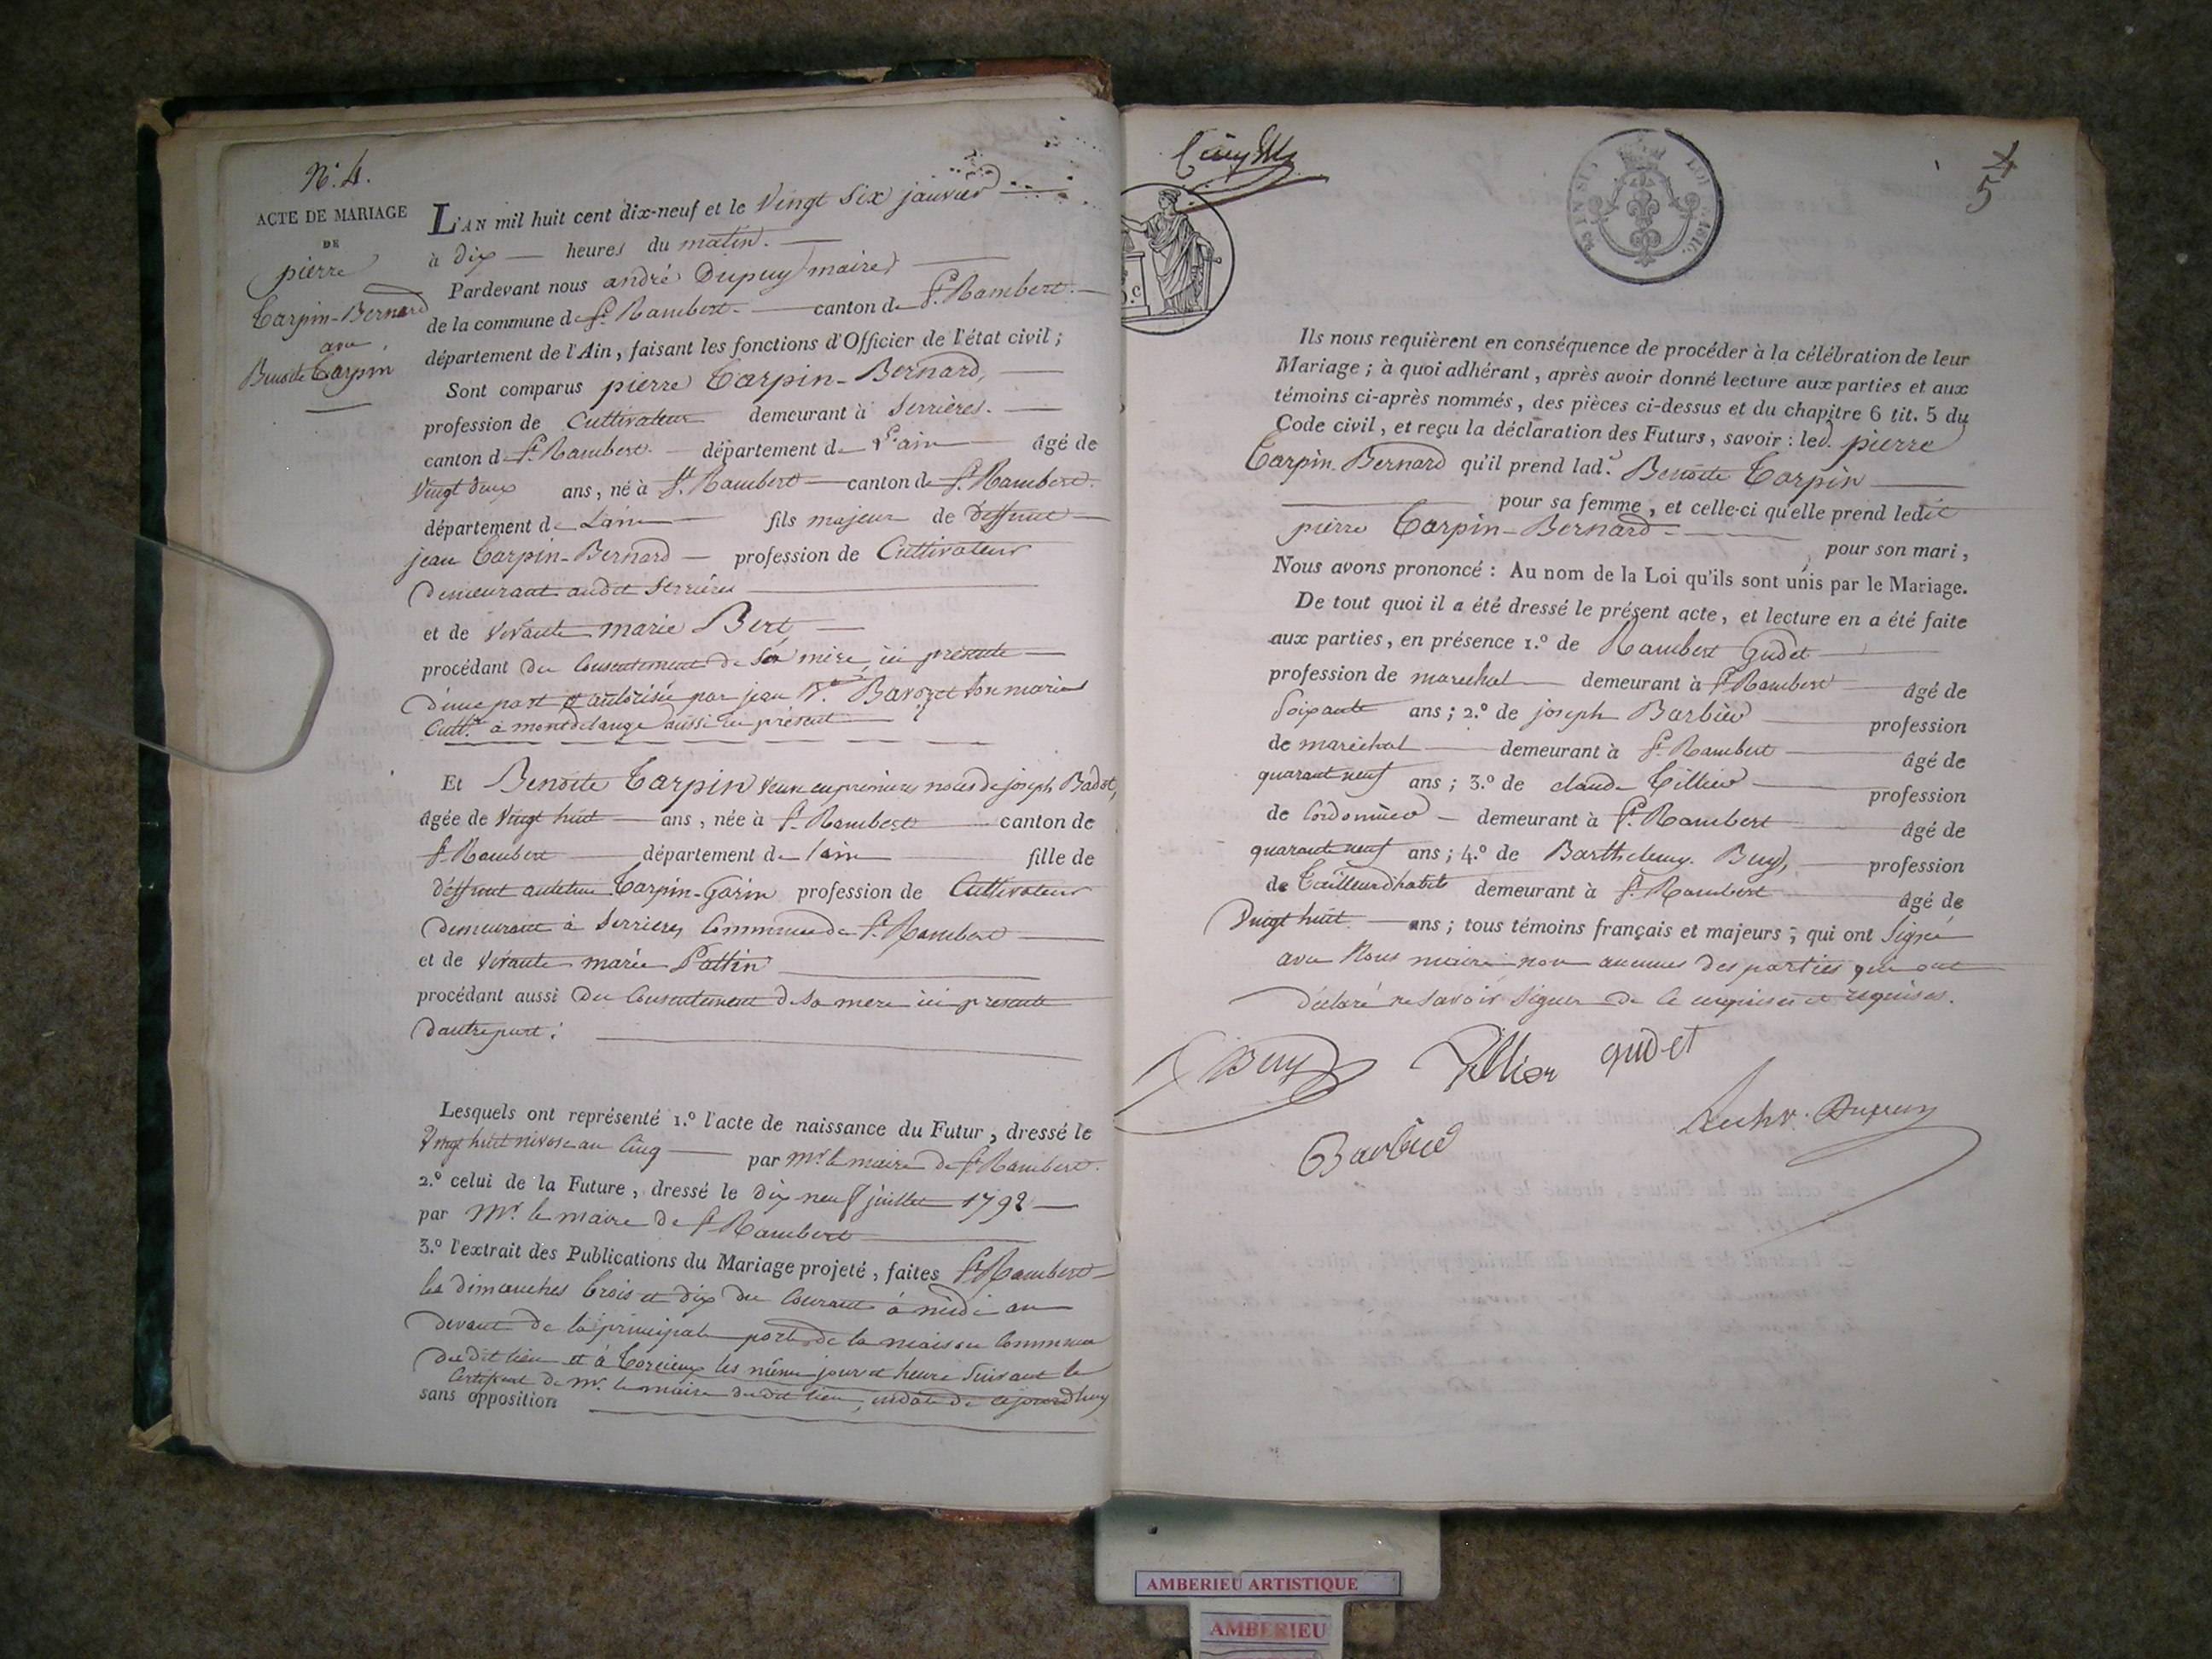 N.° 4.
ACTE DE MARIAGE
DE
pierre
Tarpin-Bernard
avec
Benoite Tarpin
L'AN mil huit cent dix-neuf et le Vingt Six janvier
à dix heures du matin.
Pardevant nous andré Dupuy maire
de la commune de St. Rambert canton de St. Rambert.
département de l'Ain, faisant les fonctions d'Officier de l'état civil;
Sont comparus pierre Tarpin-Bernard,
profession de Cultivateur demeurant à Serrières.
canton de St. Rambert. département de l'ain âgé de
Vingt deux ans, né à St. Rambert canton de St. Rambert.
département de Lain fils majeur de deffunt
jean Tarpin-Bernard profession de Cultivateur
Demeurant audit Serrières
et de vivante marie Bert
procédant du Consentement de Sa mère, ici présente
D'une part et autorisée par jean Bavozet Son mari
Cultr. à montdelange aussi ici présent
Et Benoite Tarpin veuve en premieres noces de joseph Badot,
âgée de Vingt huit ans, née à St. Rambert canton de
St. Rambert département de lain fille de
deffunt anthelme Tarpin-Garin profession de Cultivateur
Demeurant à Serrieres Commune de St. Rambert
et de vivante marie Pattin
procédant aussi Du Consentement de Sa mere ici presente
D'autre part:
Lesquels ont représenté 1.° l'acte de naissance du Futur, dressé le
Vingt huit nivose an Cinq par Mr. le maire de St. Rambert.
2.° celui de la Future, dressé le dix neuf juillet 1792
par Mr. le maire de St. Rambert
3.° l'extrait des Publications du Mariage projeté, faites St. Rambert
les dimanches trois et dix du Courant à midi au
devant de la principale porte de la maison Commune
dudit lieu et à Torcieux les même jour et heure Suivant le
Certificat de Mr. le maire dudit lieu, en date de cejourd'huy
sans opposition
LOI 1816.
4
5
Ils nous requièrent en conséquence de procéder à la célébration de leur
Mariage; à quoi adhérant, après avoir donné lecture aux parties et aux
témoins ci-après nommés, des pièces ci-dessus et du chapitre 6 tit. 5 du
Code civil, et reçu la déclaration des Futurs, savoir: led. pierre
Tarpin-Bernard qu'il prend lad.e Benoite Tarpin
pour sa femme, et celle-ci qu'elle prend ledit
pierre Tarpin-Bernard pour son mari,
Nous avons prononcé: Au nom de la Loi qu'ils sont unis par le Mariage.
De tout quoi il a été dressé le présent acte, et lecture en a été faite
aux parties, en présence 1.° de Rambert Gudet
profession de marechal demeurant à St. Rambert âgé de
Soixante ans; 2.° de joseph Barbier profession
de maréchal demeurant à St. Rambert âgé de
quarant neuf ans; 3.° de claude Tillier profession
de Cordonnier demeurant à St. Rambert âgé de
quarante neuf ans; 4.° de Barthelemy Buy, profession
de Tailleur d'habits demeurant à St. Rambert âgé de
Vingt huit ans; tous témoins français et majeurs; qui ont Signé
avec Nous maire non aucunes des parties qui ont
déclaré ne Savoir Signer de ce enquises et requises.
Buy
Tillier
gudet
Barbier
Dupuy
AMBERIEU ARTISTIQUE
AMBERIEU